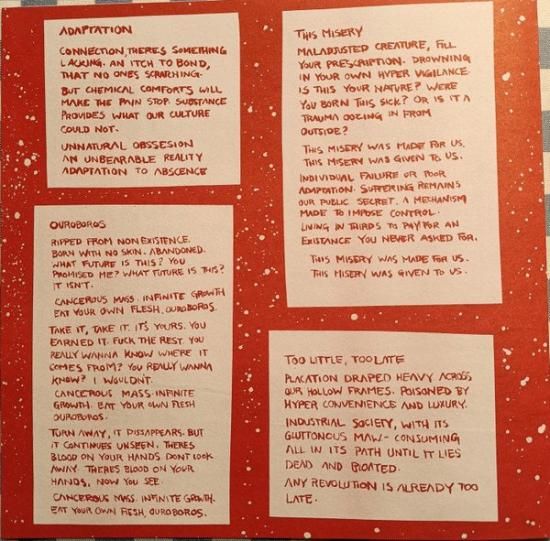 ADAPTATION
CONNECTION, THERES SOMETHING
LACKING. AN ITCH TO BOND,
THAT NO ONES SCRATCHING.
BUT CHEMICAL COMFORTS WILL
MAKE THE PAIN STOP. SUBSTANCE
PROVIDES WHAT OUR CULTURE
COULD NOT.
UNNATURAL OBSSESION
AN UNBEARABLE REALITY
ADAPTATION TO ABSCENCE
OUROBOROS
RIPPED FROM NON EXISTENCE.
BORN WITH NO SKIN. ABANDONED.
WHAT FUTURE IS THIS? YOU
PROMISED ME? WHAT FUTURE IS THIS?
IT ISN'T.
CANCEROUS MASS. INFINITE GROWTH
EAT YOUR OWN FLESH. OUROBOROS.
TAKE IT, TAKE IT. IT'S YOURS. YOU
EARNED IT. FUCK THE REST. YOU
REALLY WANNA KNOW WHERE IT
COMES FROM? YOU REALLY WANNA
KNOW? I WOULDNT.
CANCEROUS MASS. INFINITE
GROWTH. EAT YOUR OWN FLESH
OUROBOROS.
TURN AWAY, IT DISSAPEARS. BUT
IT CONTINUES UNSEEN. THERES
BLOOD ON YOUR HANDS. DONT LOOK
AWAY. THERES BLOOD ON YOUR
HANDS, NOW YOU SEE.
CANCEROUS MASS. INFINITE GROWTH.
EAT YOUR OWN FLESH, OUROBOROS.
THIS MISERY
MALADJUSTED CREATURE, FILL
YOUR PRESCRIPTION. DROWNING
IN YOUR OWN HYPER VIGILANCE.
IS THIS YOUR NATURE? WERE
YOU BORN THIS SICK? OR IS IT A
TRAUMA OOZING IN FROM
OUTSIDE?
THIS MISERY WAS MADE FOR US.
THIS MISERY WAS GIVEN TO US.
INDIVIDUAL FAILURE OR POOR
ADAPTATION. SUFFERING REMAINS
OUR PUBLIC SECRET. A MECHANISM
MADE TO IMPOSE CONTROL.
LIVING IN THIRDS TO PAY FOR AN
EXISTANCE YOU NEVER ASKED FOR.
THIS MISERY WAS MADE FOR US.
THIS MISERY WAS GIVEN TO US.
TOO LITTLE, TOO LATE
PLACATION DRAPED HEAVY ACROSS
OUR HOLLOW FRAMES. POISONED BY
HYPER CONVENIENCE AND LUXURY.
INDUSTRIAL SOCIETY, WITH ITS
GLUTTONOUS MAW- CONSUMING
ALL IN ITS PATH UNTIL IT LIES
DEAD AND BLOATED.
ANY REVOLUTION IS ALREADY TOO
LATE.